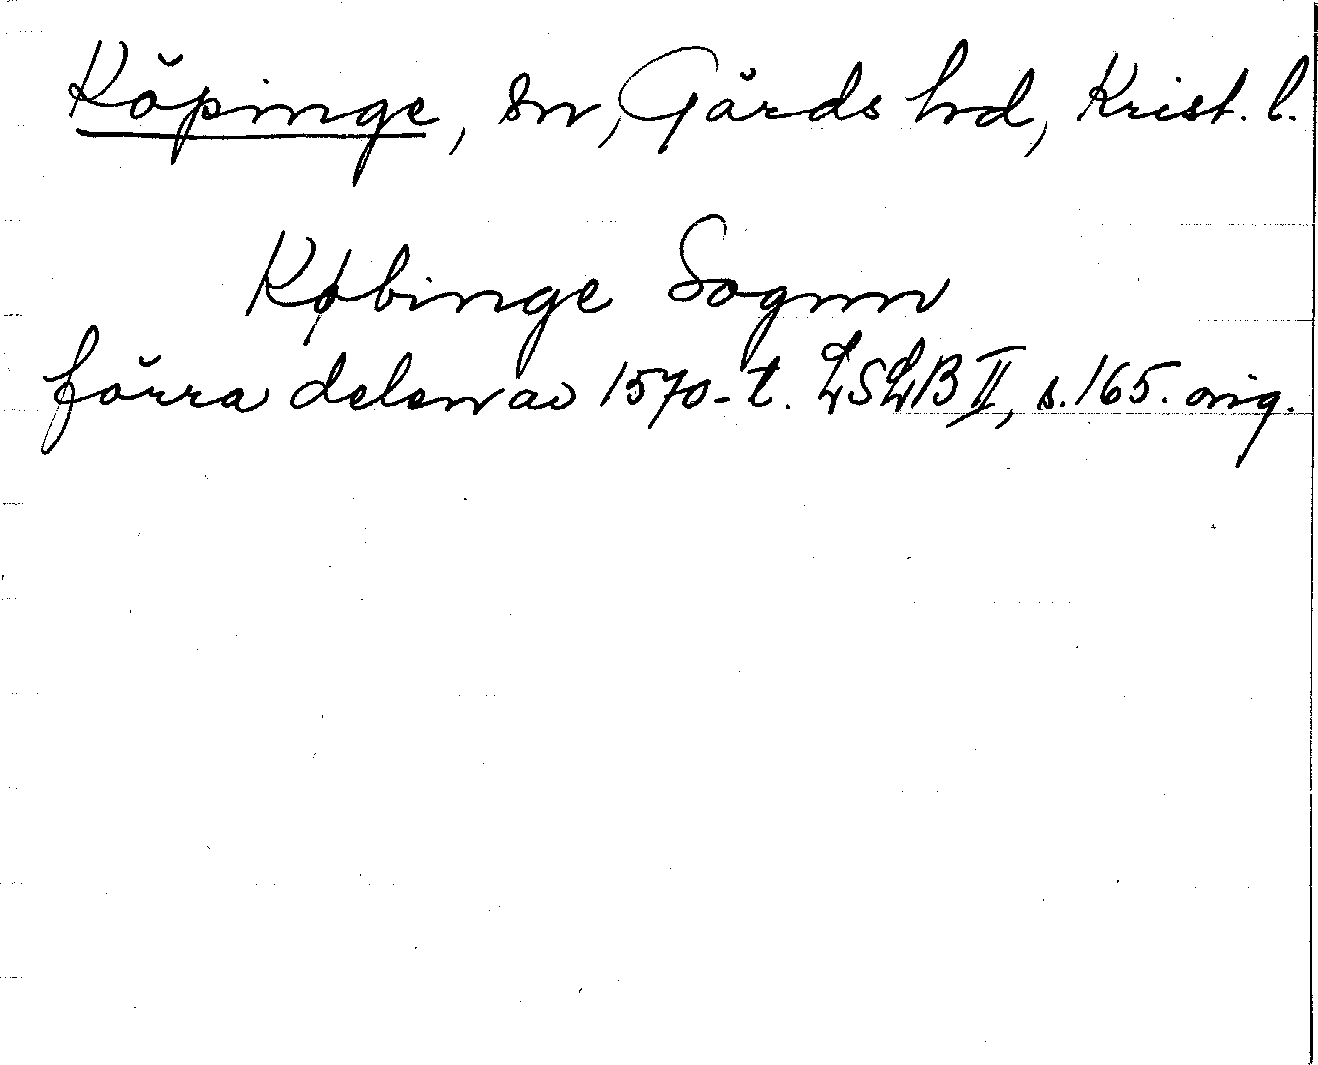 Köpinge, sn, Gärds hd, Krist. l.
Købinge Sognn
förra delen av 1570-t. LSLB II, s. 165. orig.